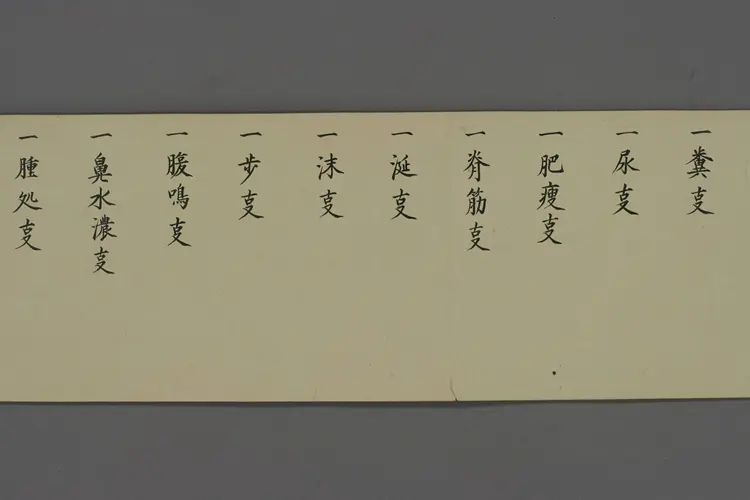 一糞叓
一尿叓
一肥痩叓
一脊筋叓
一涎叓
一沫叓
一步叓
一腹鳴叓
一鼻水濃叓
一腫処叓